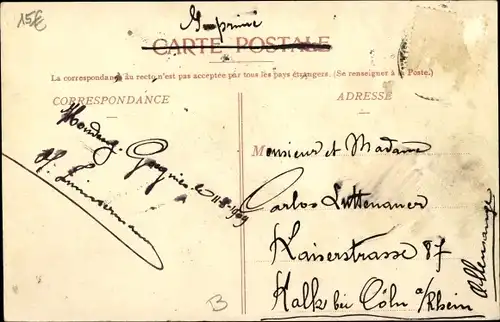 15€
CARTE POSTALE
La correspondance au recto n'est pas acceptée par tous les pays étrangers. (Se renseigner à la Poste.)
CORRESPONDANCE
ADRESSE
le 11-8-1909
H. Zimmermann
Monsieur et Madame
Carlos Luttenauer
Kaiserstrasse 87
Kalk bei Cöln a/Rhein
Allemagne
B